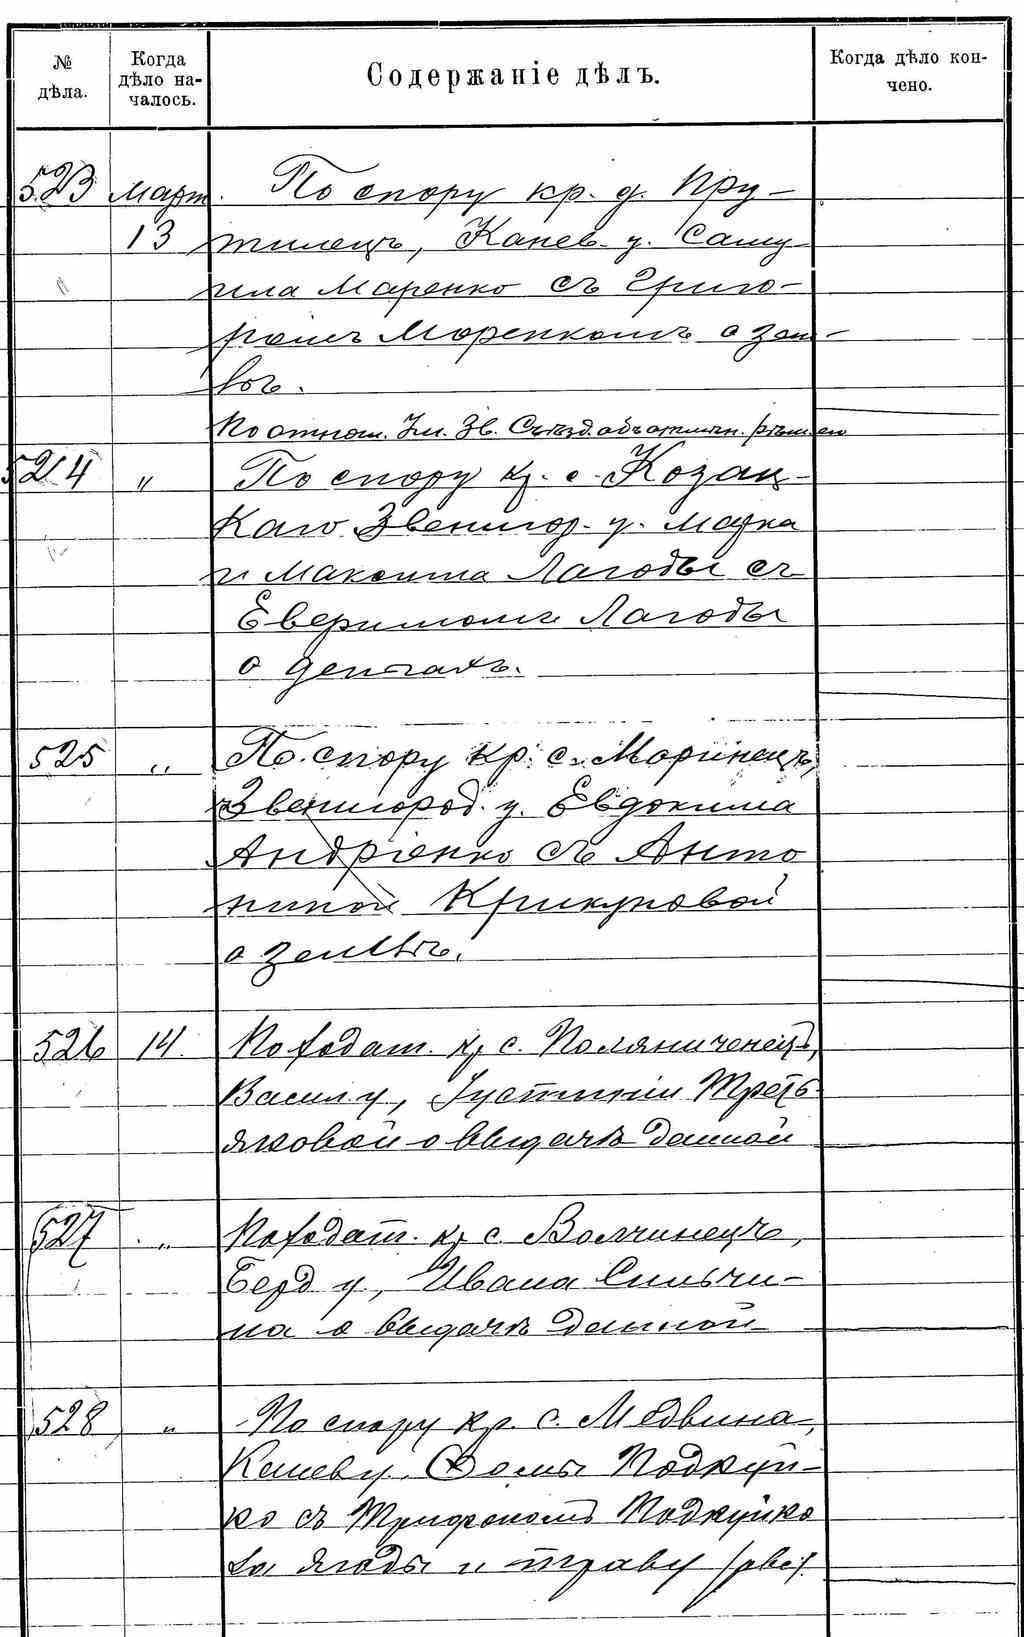 № дѣла.
Когда дѣло на-
чалось.
Содержаніе дѣлъ.
Когда дѣло кон-
чено.
523 Март. По спору кр. д. Пру-
13 тилецъ, Канев. у. Саму-
ила Маренко съ Григо-
ріемъ Маренкомъ о
По отнош. Ум. Зв. Съѣзд. объ отмѣн. рѣшен.
524 " По спору кр. с. Козац-
каго Звенигор. у. Марка
и Максима Лагоды съ
Лагоды
о
525 " По спору кр. с. Моринецъ,
Звенигород. у. Евдокима
Андріенко съ Анто
ниной Крикуновой
о землѣ.
526 14. По ходат. кр. с. Поляниченецъ,
Васил у, Іустиніи Треть-
яковой о выдачѣ данной
527 " По ходат. кр. с. Волчинецъ,
Берд у, Ивана Сильчи-
на о выдачѣ данной
528 " По спору кр. с. Медвина,
Канев у. Фомы Подкуй-
ко съ Трифономъ Подкуйко
за ягоды и траву